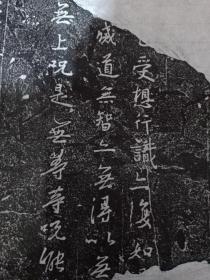 受想行識亦復如
滅道無智亦無得以無
無上呪是無等等呪能